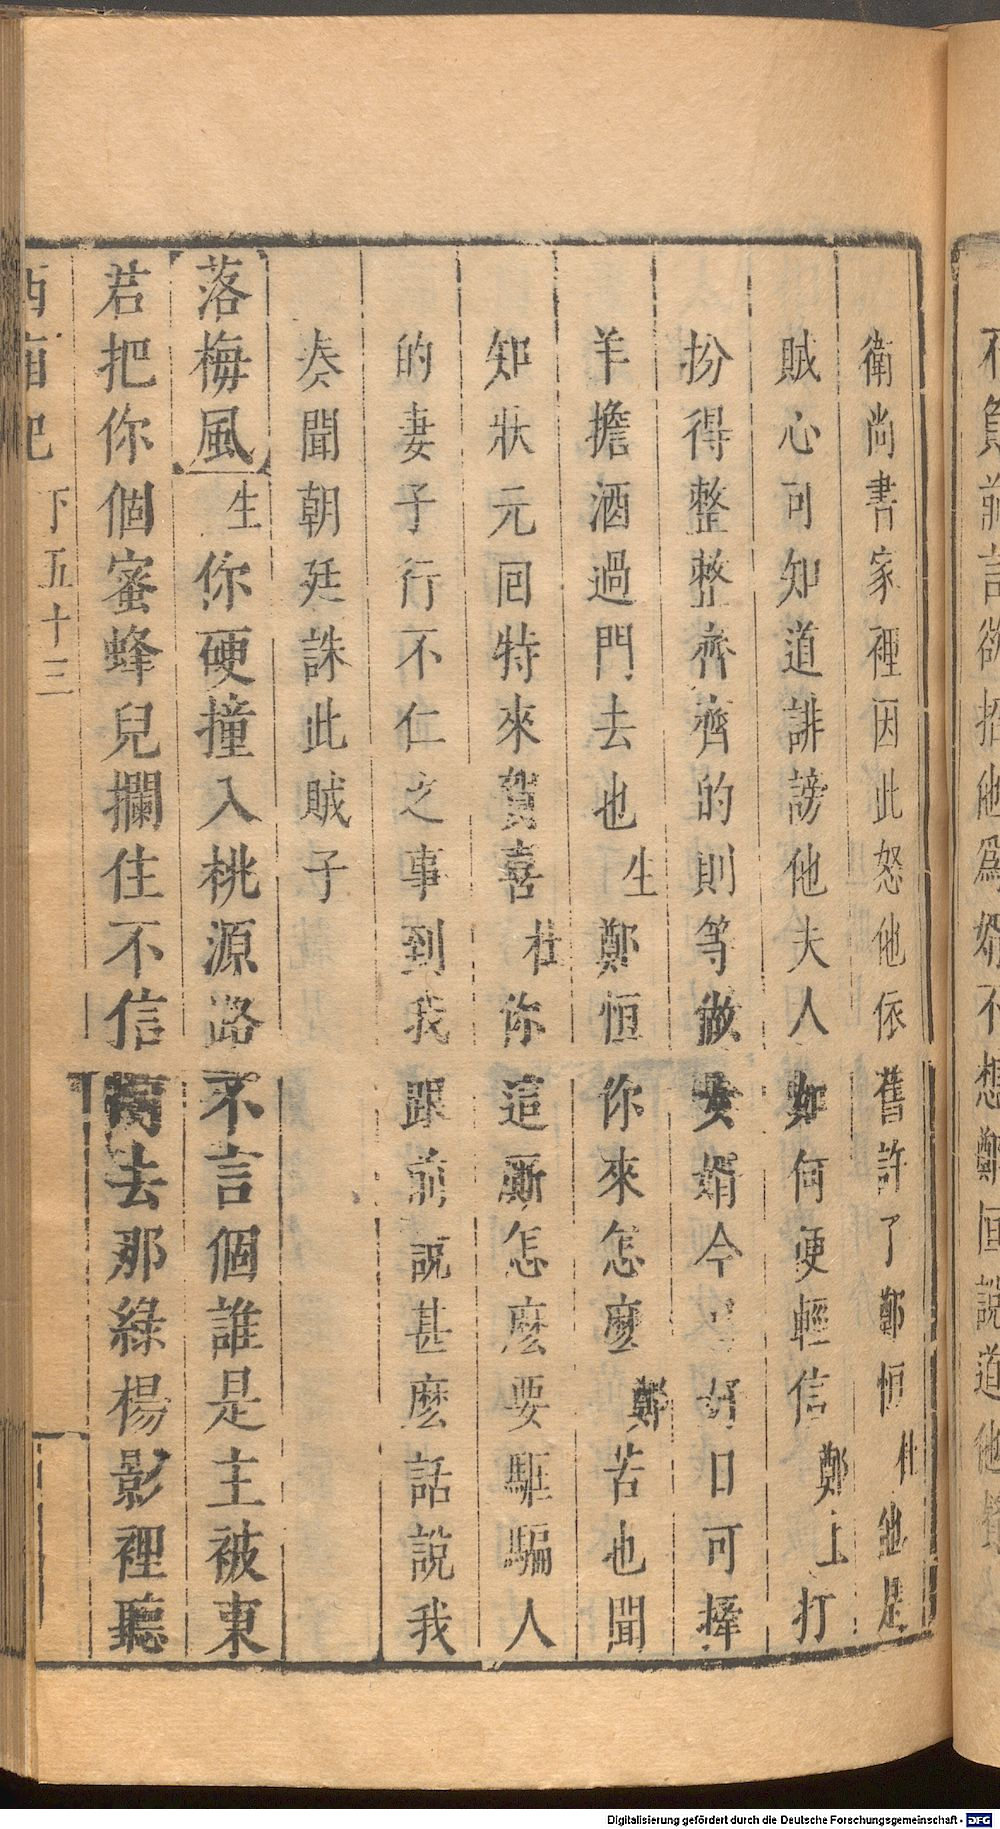 衛尚書家裡因此怒他依舊許了鄭恒 杜 他是
賊心可知道誹謗他夫人如何便輕信 鄭上 打
扮得整整齊齊的則等做女婿今日好日可擇
羊擔酒過門去也 生 鄭恒你來怎麽 鄭 苦也聞
知狀元囘特來賀喜 杜 你這廝怎麽要駆騙人
的妻子行不仁之事到我跟前說甚麽話說我
奏聞朝廷誅此賊子
落梅風 生 你硬撞入桃源路不言個誰是主被東
君把你個蜜蜂兒攔住不信 去那綠楊影裡聽
西廂記 下五十三
不 言欲招他爲婿不想鄭恒說道他
Digitalisierung gefördert durch die Deutsche Forschungsgemeinschaft - DFG